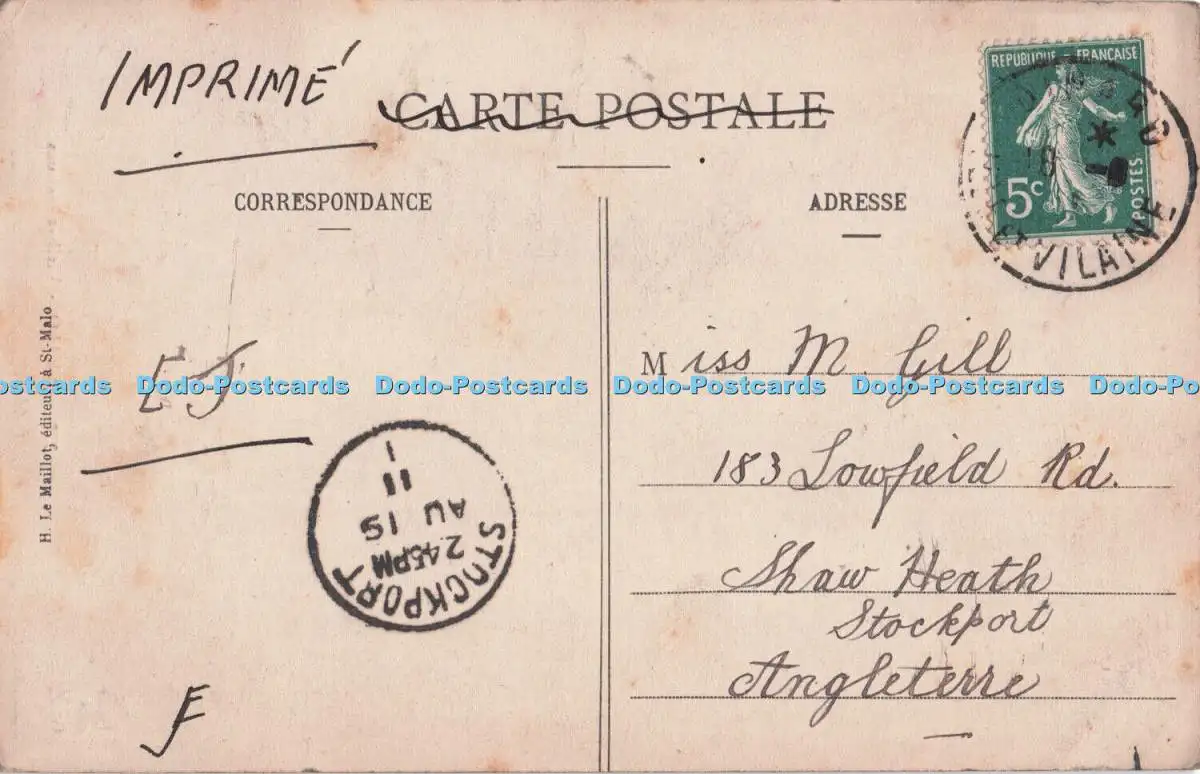 IMPRIMÉ
CARTE POSTALE
REPUBLIQUE FRANÇAISE
5c
POSTES
ET VILAINE
CORRESPONDANCE
ADRESSE
H. Le Maillot, éditeur, à St-Malo
Miss M. Gill
Dodo-Postcards Dodo-Postcards Dodo-Postcards Dodo-Postcards Dodo-Postcards
183 Lowfield Rd.
STOCKPORT
2 45PM
AU 15
11
Shaw Heath
Stockport
Angleterre